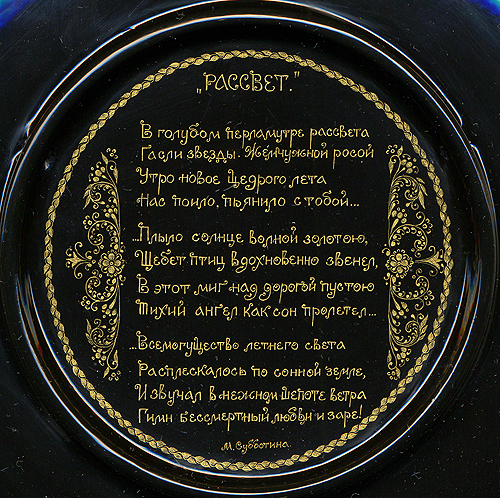 „РАССВЕТ."
В голубом перламутре рассвета
Гасли звезды. Жемчужной росой
Утро новое щедрого лета
Нас поило, пьянило с тобой...
...Плыло солнце волной золотою,
Щебет птиц вдохновенно звенел,
В этот миг над дорогой пустою
Тихий ангел как сон пролетел...
...Всемогущество летнего света
Расплескалось по сонной земле,
И звучал в нежном шепоте ветра
Гимн бессмертный, любви и заре!
М. Субботина.